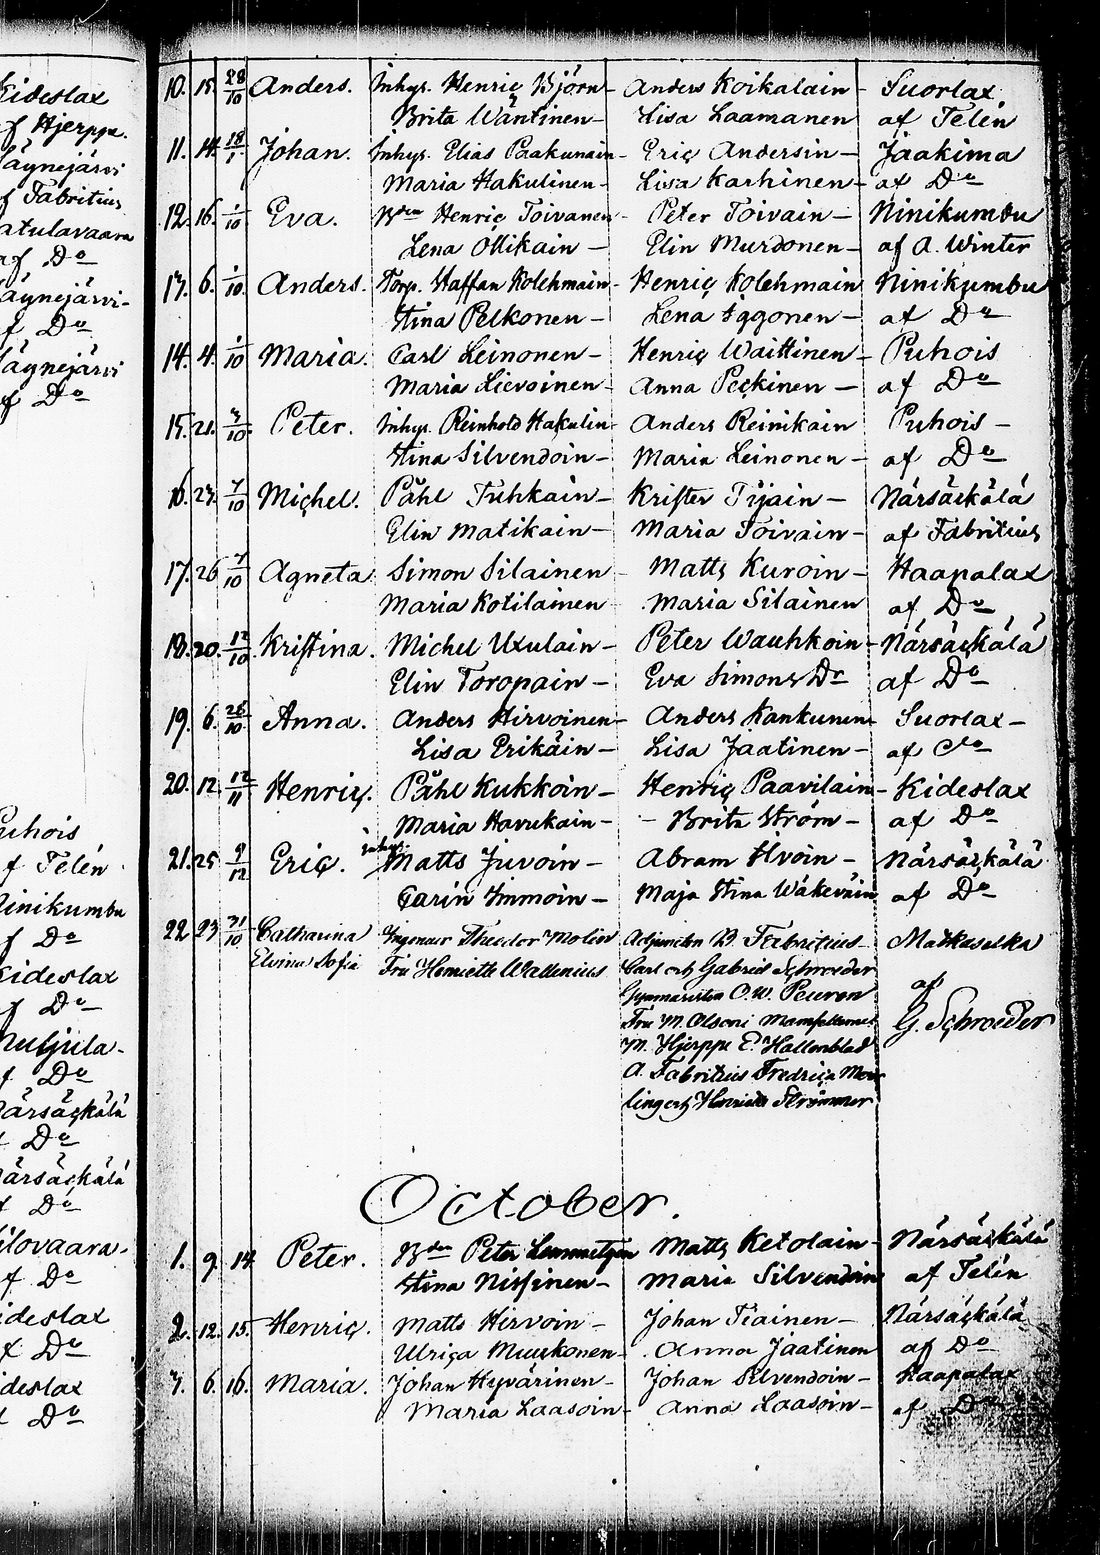 Kideslax
af Hjerppe.
Käynejärvi
af Fabritius
Matulavaara
af Do
Käynejärvi-
af Do
Käynejärvi
af Do
Puhois
af Telén
Ninikumbu
af Do
Kideslax
af Do
af Do
Närsäckälä
af Do
Närsäckälä
af Do
af Do
Kideslax
af Do
Kideslax
af Do
10. 15. 28/10 Anders. Inhys. Henric Björn- Anders Koikalain- Suorlax
Brita Wäntinen- Lisa Laamanen af Telén
11. 14. 18/1 Johan. Inhys. Elias Paakunain- Eric Andersin- Jaakima
Maria Hakulinen- Lisa Karhinen- af Do
12. 16. 1/10 Eva. Bden Henric Toivanen- Peter Toivain- Ninikumbu
Lena Ottikain- Elin Murdonen- af A. Winter
13. 6. 1/10 Anders. Torp. Staffan Kolehmain- Henric Kolehmain Ninikumbu
Stina Pelkonen- Lena Iggonen- af Do
14. 4. 1/10 Maria. Carl Leinonen- Henric Waittinen- Puhois
Maria Lievoinen- Anna Peckinen- af Do
15. 21. 3/10 Peter. Inhys. Reinhold Hakulin- Anders Reinikain Puhois-
Stina Silvendoin- Maria Leinonen- af Do
16. 23. 7/10 Michel. Påhl Tuhkain- Krister Tijain- Närsäckälä
Elin Matikain- Maria Toivain- af Fabritius
17. 26 7/10 Agneta Simon Silainen Matts Kuroin- Haapalax
Maria Kotilainen Maria Silainen af Do
18. 20. 12/10 Kristina. Michel Uxulain- Peter Wauhkoin- Närsäckälä
Elin Toropain- Eva Simons Dr af Do
19. 6. 26/10 Anna. Anders Hirvoinen- Anders Kankunen- Suorlax-
Lisa Erikäin- Lisa Jaatinen- af Do
20. 12. 12/11 Henric. Påhl Kukkoin- Henric Paavilain- Kideslax
Maria Havukain- Brita Ström- af Do
21. 25. 9/12 Eric. inhys. Matts Juvoin- Abram Hvoin- Närsäckälä
Carin Immoin- Maja Stina Wäkeväin af Do
22. 23 31/10 Catharina Ingeneur Theodor Molin Adjuncten B. Fabritius- Matkaselkä
Elvina Sofia Fru Henriette Wallenius Carl och Gabriel Schroeder
Gymnasisten C. W. Peuron af
Fru M. Olsoni Mamsellerne G. Schroeder
M. Hjerppe E. Hallenblad
A. Fabritius Fredrica Mo
ling och Henrica Strömmer
October.
1. 9. 14. Peter. Bden Peter Lemmetyin Matts Ketolain- Närsäckälä
Stina Nissinen- Maria Silvendoin af Telén
2. 12. 15. Henric. Matts Hirvoin- Johan Tiainen- Närsäckälä
Ulrica Muukonen- Anna Jaatinen af Do
3. 6. 16. Maria. Johan Hyvärinen- Johan Silvendoin- Haapalax
Maria Laasoin- Anna Laasoin- af Do